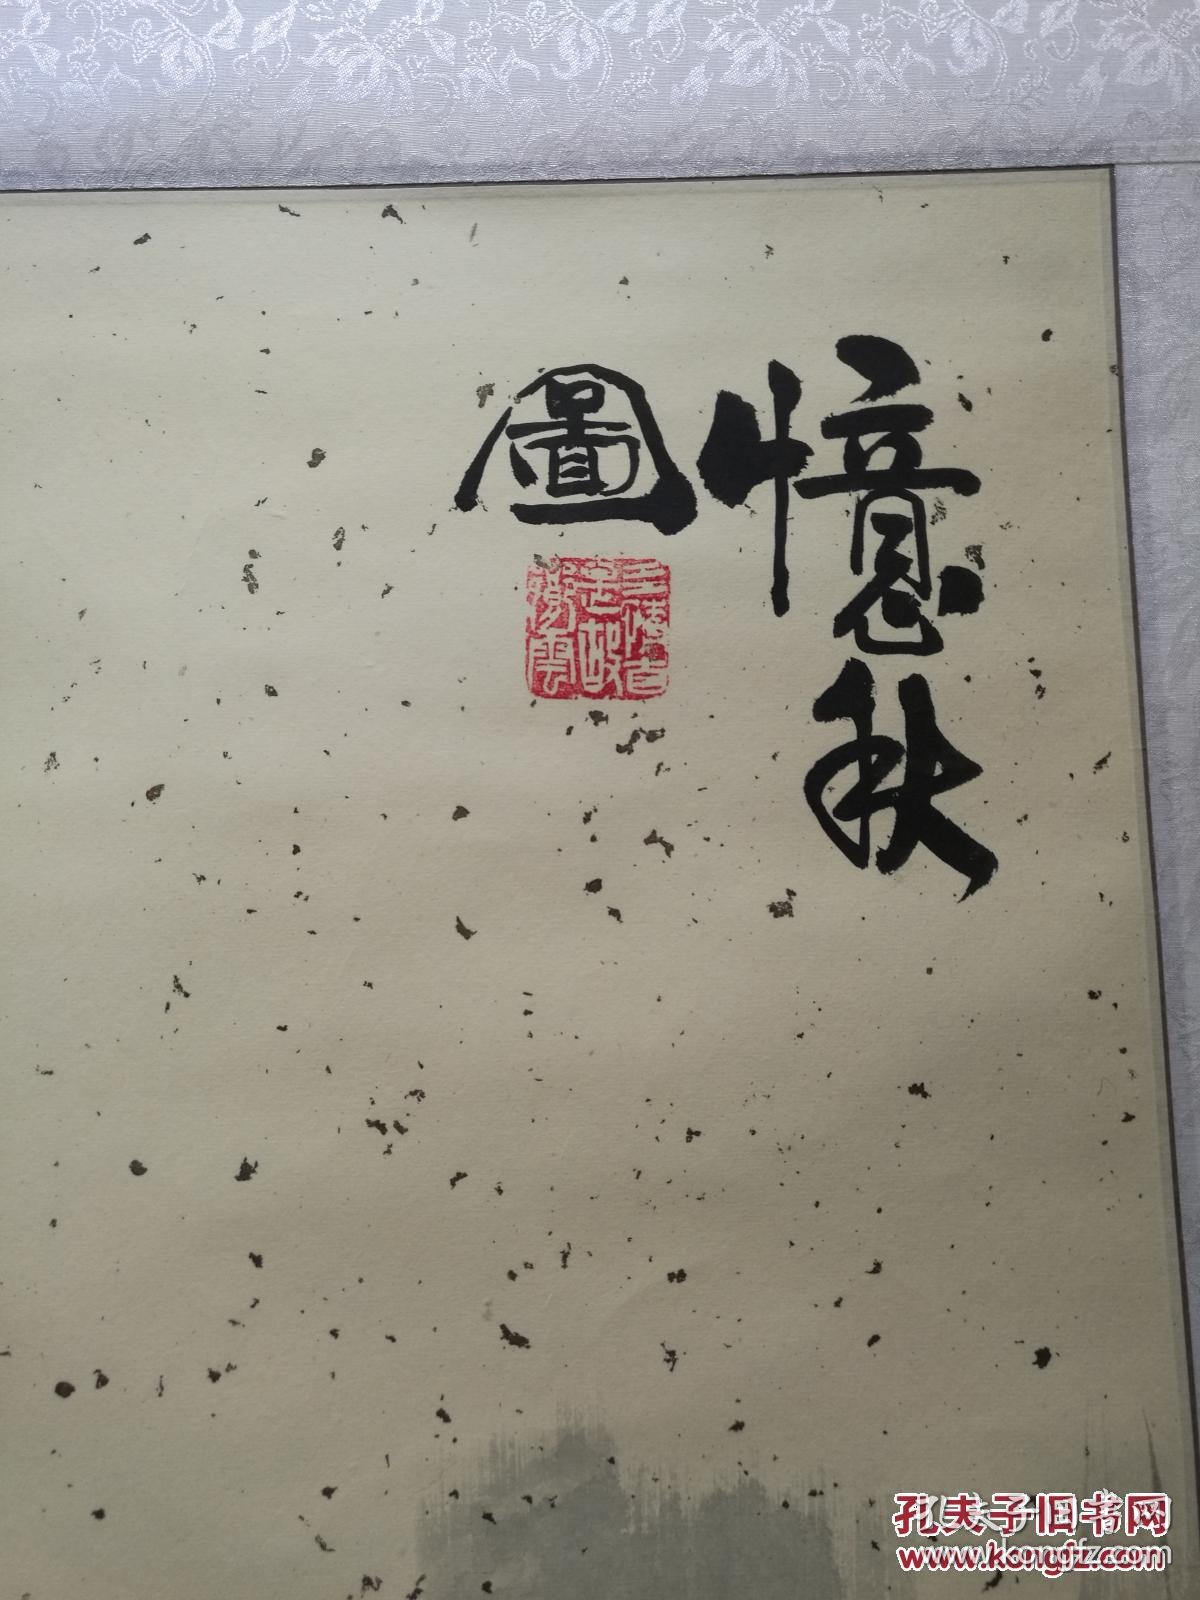 憶秋
圖
孔夫子旧书网
www.kongfz.com